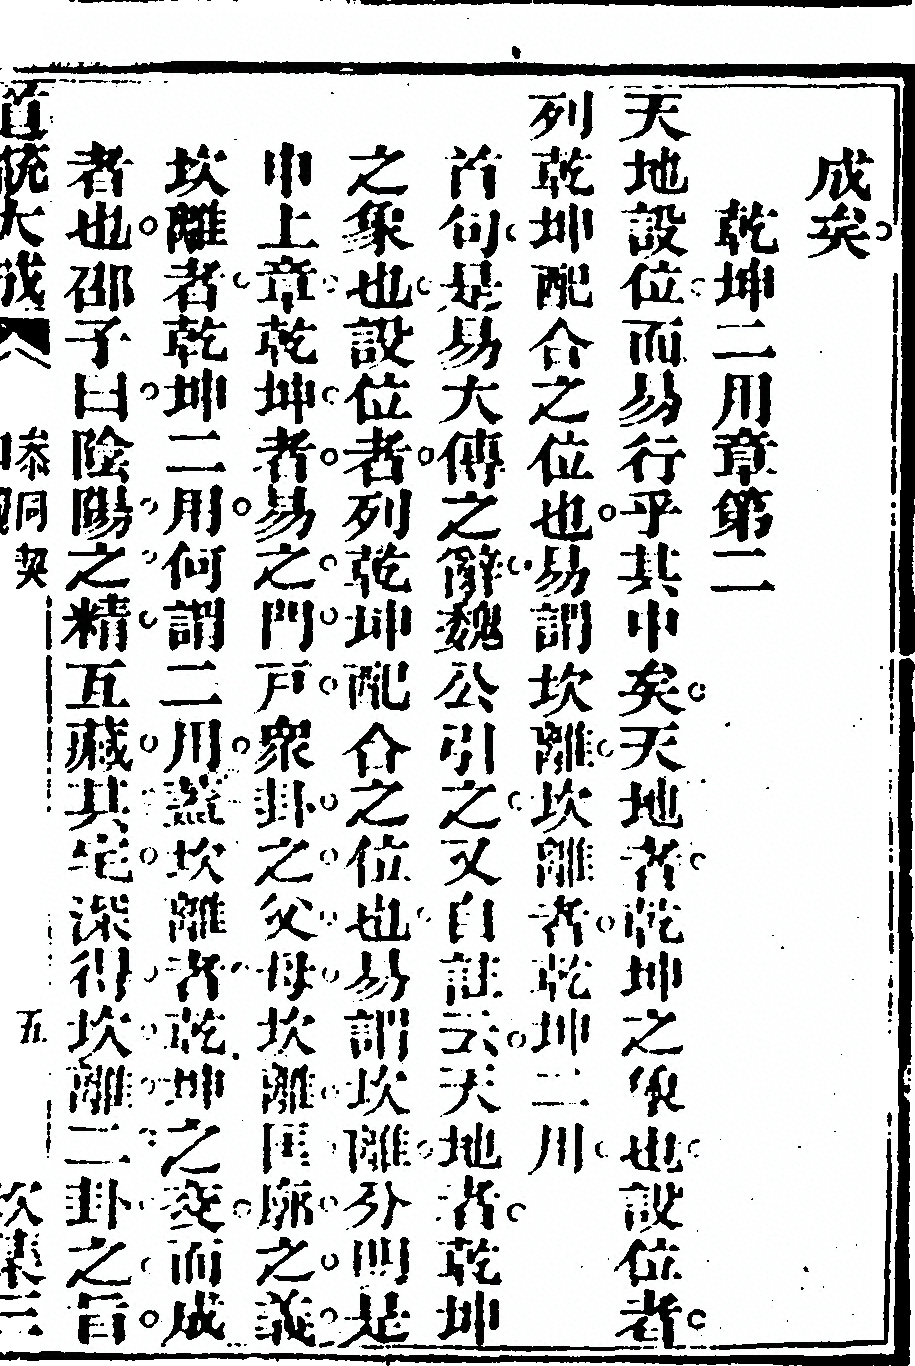 成矣
乾坤二用章第二
天地設位而易行乎其中矣天地者乾坤之象也設位者
列乾坤配合之位也易謂坎離坎離者乾坤二用
首句是易大傳之辭魏公引之又自註云天地者乾坤
之象也設位者列乾坤配合之位也易謂坎離分明是
申上章乾坤者易之門戸衆卦之父母坎離匡廓之義
坎離者乾坤二用何謂二用蓋坎離者乾坤之交而成
者也邵子曰陰陽之精互藏其宅深得坎離二卦之旨
道統大成 參同契 五 坎集三